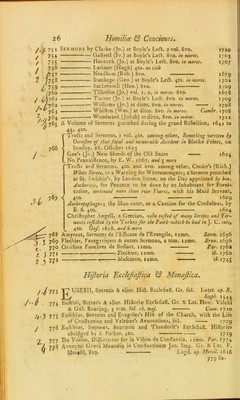 26 Homiliæ & Conciones.
751 SERMONS by Clarke (Jn.) at Boyle's Lect. 2 vol. 8vo. 1720
754 Gastrell (Fr.) at Boyle's Lect. 8vo. in morec. 1703
755 Hancock (Jn.) at Boyle's Lect. 8vo. in morec. 1707
756 Latimer (Hugh) 4to. no title
757 Needham (Rob.) 8vo. 1679
758 Stanhope (Geo.) at Boyle's Lect. 4to. in morec. 1702
759 Sacheverell (Hen.) 8vo. 1709
760 Tillotson (Jn.) vol. 1. 2, in morec. 8vo. 1678
761 Turner (Jn.) at Boyle's Lect. 8vo. in morec. 1709
762 Williams (Jn.) at ditto, 8vo. in morec. 1708
763 Whiston (Wm.) at ditto, 8vo. in morec. Cambr. 1708
764 Woodward (Josiah) at ditto, 8vo. in morec. 1712
765 A Volume of Sermons preached during the grand Rebellion, 1641 to
44. 4to.
766 Tracts and Sermons, 1 vol. 4to. among other, Something written by
Occasion of that fatal and memorable Accident in Blacke Friers, on
Sunday, 26. October 1623
Coxe's (Jn.) New Shreds of the Old Snare 1624
No Præexistence, by E. W. 1667; and 5 more
767 Tracts and Sermons, 4to. and 8vo. among other, Crosse's (Rich.)
White Stones, or a Warning for Whoremongers; a Sermon preached
at St. Swithin's, by London Stone, on the Day appointed by hon.
Audience, for Penance to be done by an Inhabitant for Forni-
cation, continued more than two Yeares, with his Maid Servant,
4to. 1609
Anthropophagus; the Man-eater, or a Caution for the Credulous, by
E. S. 4to.
Christopher Angell, a Grecian, who tasted of many Stripes and Tor-
ments inflicted by the Turkes for the Faith which he had in J. C. 1617,
4to. Oxf. 1618. and 6 more
768 Amyraut, Sermons de l'Efficace de l'Evangile, 12mo. Saum. 1656
769 Flechier, Panegyriques & autres Sermons, 2 tom. 12mo. Brux. 1696
770 Oraisons Funebres de Bossuet, 12mo. Par. 1762
771 Flechier, 12mo. ib. 1760
772 Mascaron, 12mo. ib. 1745
Historia Ecclesiastica & Monastica.
773 EUSEBII, Socratis & alior. Hist. Ecclesiast. Gr. fol. Lutet. ap. R.
Steph. 1544
774 Eusebii, Socratis & alior. Historiæ Ecclesiast. Gr. & Lat. Henr. Valesii
& Gul. Reading, 3 vol. fol. ch. mag. Cant. 1720
775 Eusebius, Socrates and Evagrius's Hist. of the Church, with the Life
of Constantine and Valesius' Annotations, fol. 1709
776 Eusebius, Socrates, Sozomen and Theodorit's Ecclesiast. Histories
abridged by S. Parker, 4to. 1729
777 Du Voisin, Dissertation sur la Vision de Constantin. 12mo. Par. 1774
778 Anonymi Græci Menologium